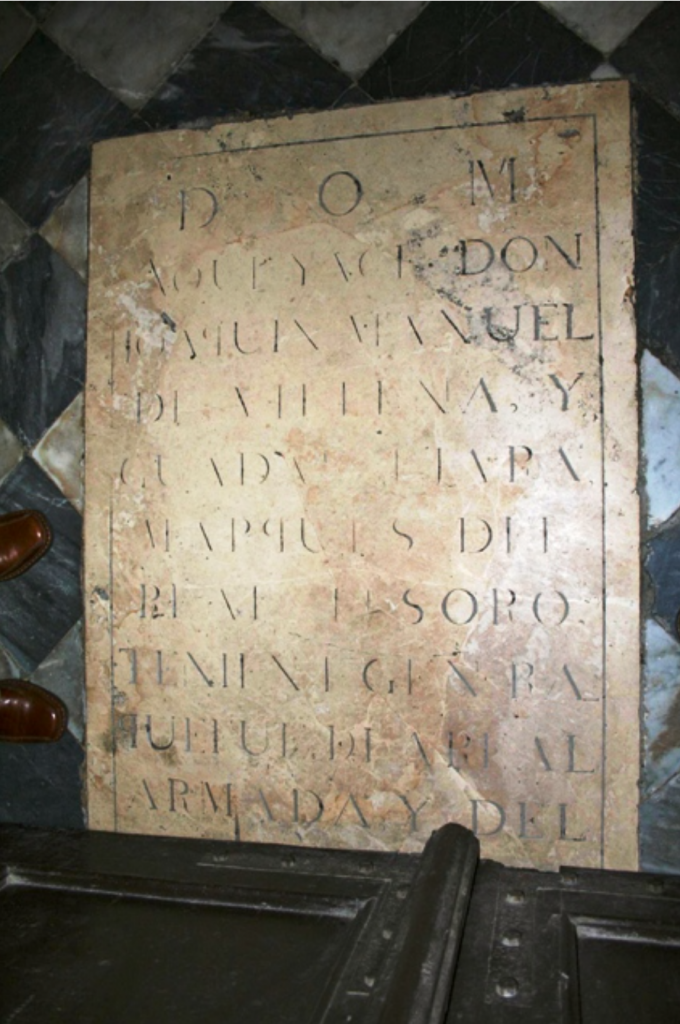 D O M
AQUI YACE DON
IOAQUIN MANUEL
DE VILLENA, Y
GUADALFIARA
MARQUES DEL
REAL TESORO
TENIENT GENRA
QUE FUE DE LA REAL
ARMADA, Y DEL